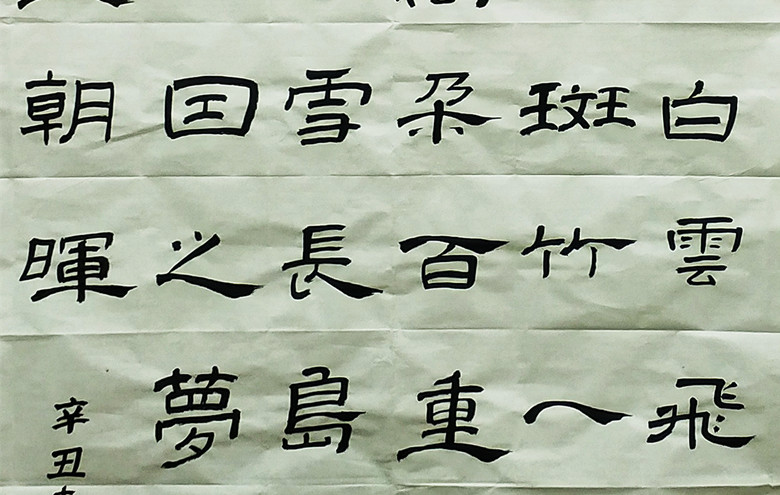 白雲飛
斑竹一
朵百重
雪長島
因之夢
朝暉
辛丑